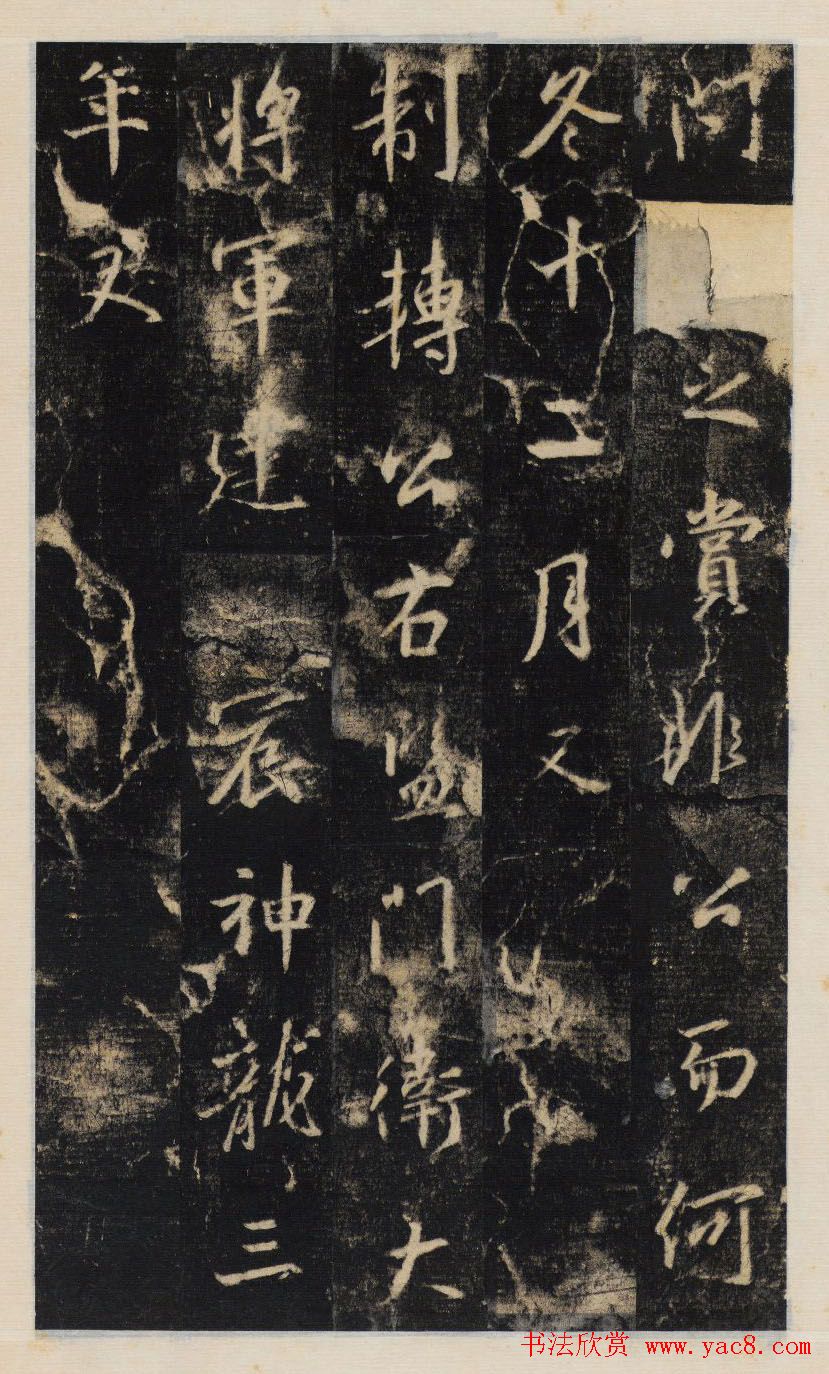 門之賞非公而何
冬十二月又
制轉公右監門衛大
將軍建宸神龍三
年又
书法欣赏 www.yac8.com